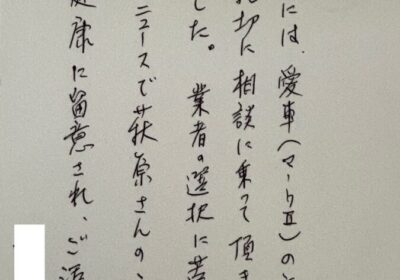 には、愛車(マークⅡ)のと
切に相談に乗って頂き
した。業者の選択に苦
ニュースで萩原さんのこ
健康に留意され、ご活